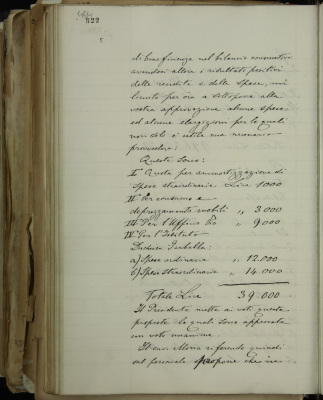 322
di beneficenza nel bilancio consuntivo
avendosi allora i risultati positivi
delle rendite e delle spese, mi
limito per ora a sottoporre alla
vostra approvazione alcune spese
ed alcune elargizioni per le quali
non solo è utile ma necessario
provvedere:
Queste sono:
I° Quota per ammortizzazione di
spese straordinarie Lire 1000
II° Per consumo e
deprezzamento mobili " 3.000
III° Per l'Ufficio Pio " 9.000
IV° Per l'Istituto
Duchessa Isabella:
a) Spese ordinarie " 12.000
b) Spese straordinarie " 14.000
Totale Lire 39.000
Il Presidente mette ai voti queste
proposte le quali sono approvate
con voto unanime.
Il cav. riferendo quindi
sul personale propone che